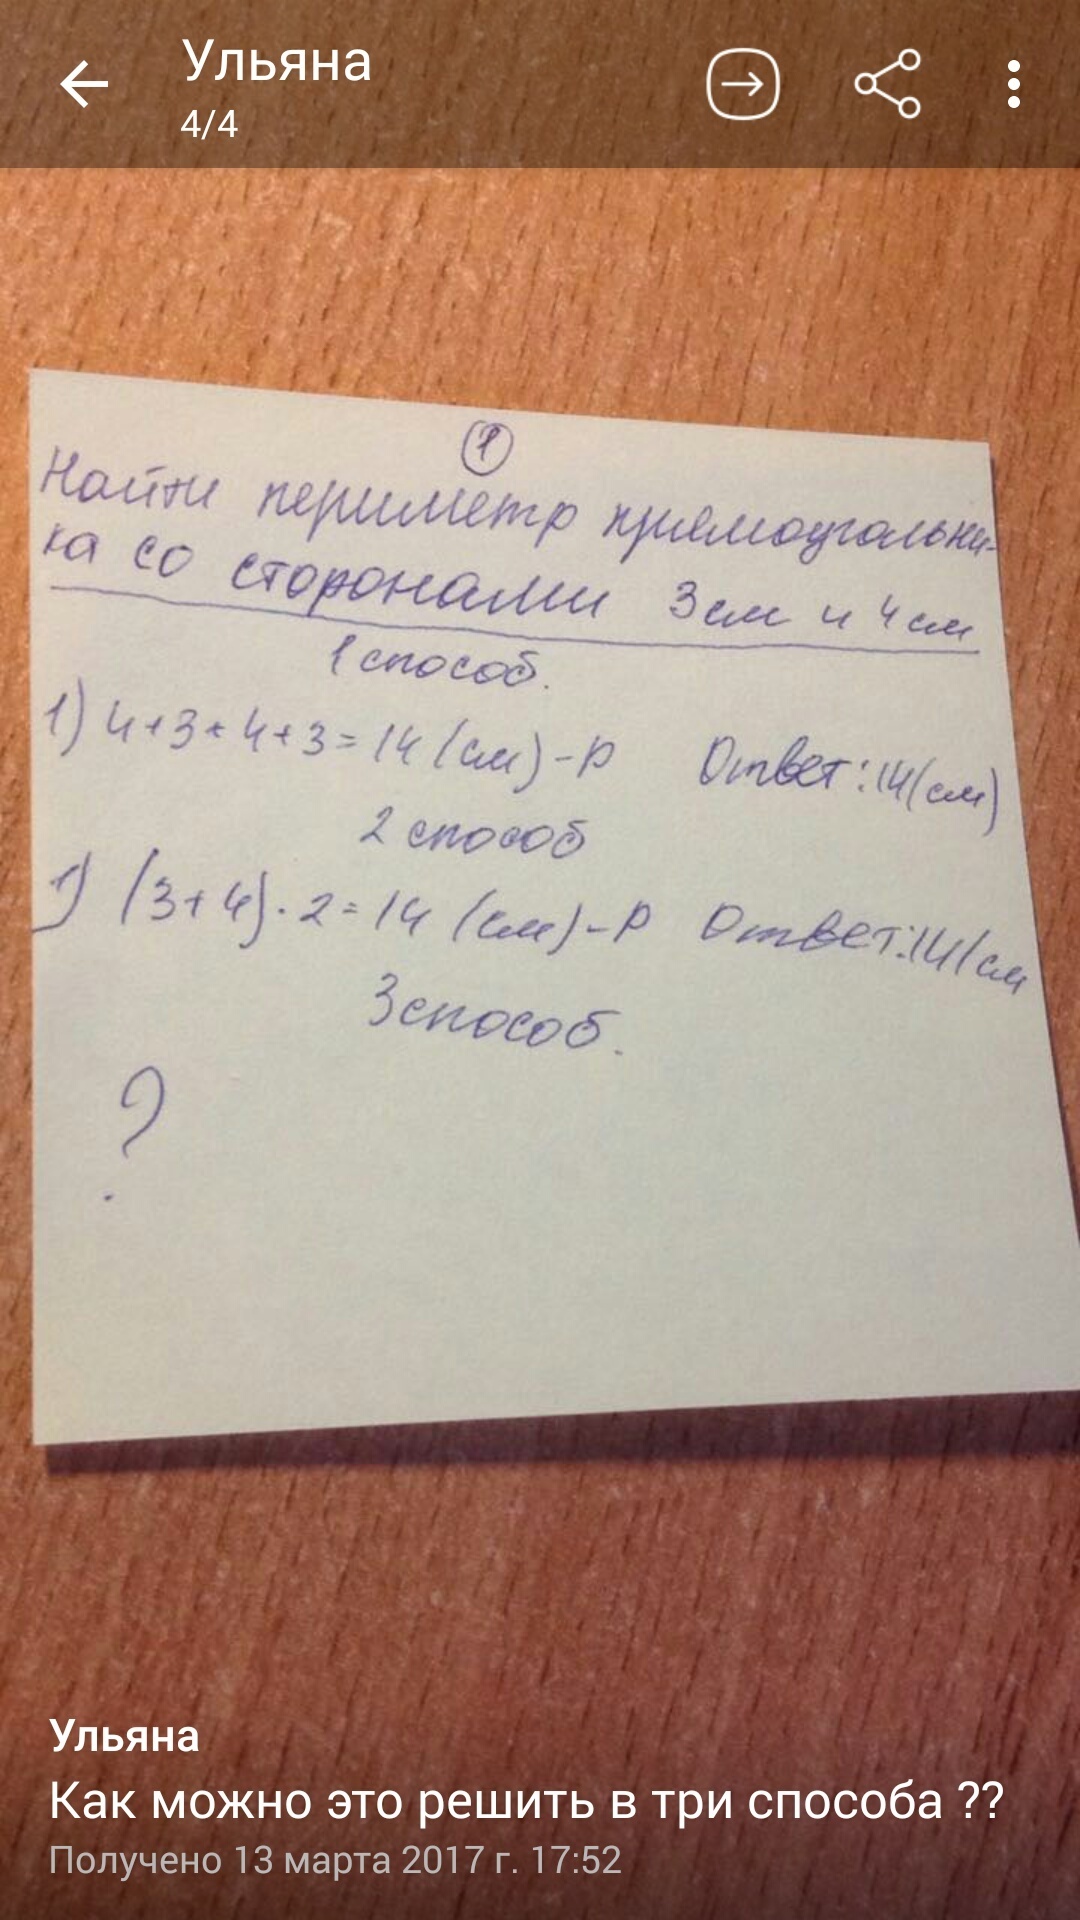 Ульяна
4/4
1
Найти периметр прямоугольни-
ка со сторонами 3см и 4см
1 способ.
1) 4+3+4+3=14 (см)-P Ответ:14(см)
2 способ
1) (3+4)·2=14 (см)-P Ответ:14(см
3 способ.
?
Ульяна
Как можно это решить в три способа ??
Получено 13 марта 2017 г. 17:52